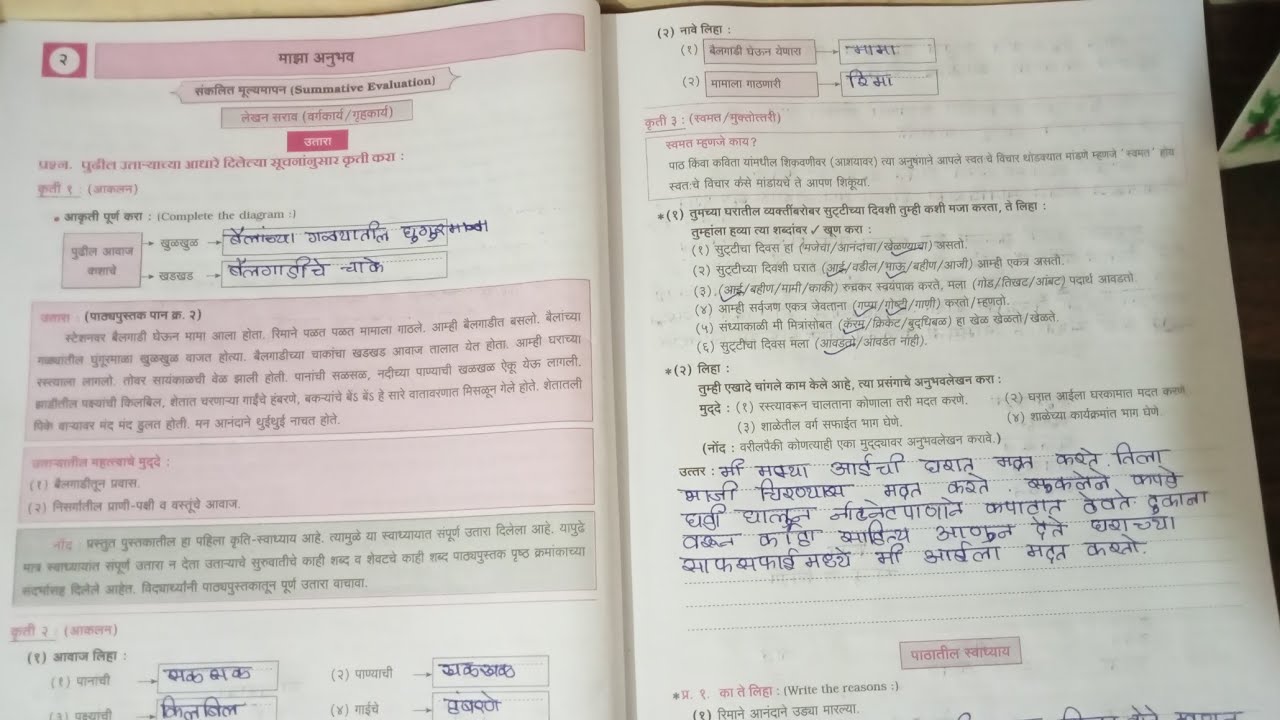 २
माझा अनुभव
संकलित मूल्यमापन (Summative Evaluation)
लेखन सराव (वर्गकार्य/गृहकार्य)
उतारा
प्रश्न. पुढील उताऱ्याच्या आधारे दिलेल्या सूचनांनुसार कृती करा :
कृती १ : (आकलन)
• आकृती पूर्ण करा : (Complete the diagram :)
पुढील आवाज कशाचे
खुळखुळ → बैलांच्या गळ्यातील घुंगुरमाळा
खडखड → बैलगाडीचे चाके
उतारा : (पाठ्यपुस्तक पान क्र. २)
स्टेशनवर बैलगाडी घेऊन मामा आला होता. रिमाने पळत पळत मामाला गाठले. आम्ही बैलगाडीत बसलो. बैलांच्या
गळ्यांतील घुंगूरमाळा खुळखुळ वाजत होत्या. बैलगाडीच्या चाकांचा खडखड आवाज तालात येत होता. आम्ही घराच्या
रस्त्याला लागलो. तोवर सायंकाळची वेळ झाली होती. पानांची सळसळ, नदीच्या पाण्याची खळखळ ऐकू येऊ लागली.
झाडीतील पक्ष्यांची किलबिल, शेतात चरणाऱ्या गाईंचे हंबरणे, बकऱ्यांचे बेंऽ बेंऽ हे सारे वातावरणात मिसळून गेले होते. शेतातली
पिके वाऱ्यावर मंद मंद डुलत होती. मन आनंदाने थुईथुई नाचत होते.
उताऱ्यातील महत्त्वाचे मुद्दे :
(१) बैलगाडीतून प्रवास.
(२) निसर्गातील प्राणी-पक्षी व वस्तूंचे आवाज.
नोंद : प्रस्तुत पुस्तकातील हा पहिला कृति-स्वाध्याय आहे. त्यामुळे या स्वाध्यायात संपूर्ण उतारा दिलेला आहे. यापुढे
मात्र स्वाध्यायांत संपूर्ण उतारा न देता उताऱ्याचे सुरुवातीचे काही शब्द व शेवटचे काही शब्द पाठ्यपुस्तक पृष्ठ क्रमांकाच्या
संदर्भासह दिलेले आहेत. विद्यार्थ्यांनी पाठ्यपुस्तकातून पूर्ण उतारा वाचावा.
कृती २ : (आकलन)
(१) आवाज लिहा :
(१) पानांची → सळसळ (२) पाण्याची → खळखळ
(३) पक्ष्यांची → किलबिल (४) गाईंचे → हंबरणे
(२) नावे लिहा :
(१) बैलगाडी घेऊन येणारा → मामा
(२) मामाला गाठणारी → रिमा
कृती ३ : (स्वमत/मुक्तोत्तरी)
स्वमत म्हणजे काय?
पाठ किंवा कविता यांमधील शिकवणीवर (आशयावर) त्या अनुषंगाने आपले स्वतःचे विचार थोडक्यात मांडणे म्हणजे 'स्वमत' होय
स्वतःचे विचार कसे मांडायचे ते आपण शिकूया.
*(१) तुमच्या घरातील व्यक्तींबरोबर सुट्टीच्या दिवशी तुम्ही कशी मजा करता, ते लिहा :
तुम्हांला हव्या त्या शब्दांवर ✓ खूण करा :
(१) सुट्टीचा दिवस हा (मजेचा/आनंदाचा/खेळण्याचा) असतो.
(२) सुट्टीच्या दिवशी घरात (आई/वडील/भाऊ/बहीण/आजी) आम्ही एकत्र असतो.
(३) (आई/बहीण/मामी/काकी) रुचकर स्वयंपाक करते, मला (गोड/तिखट/आंबट) पदार्थ आवडतो.
(४) आम्ही सर्वजण एकत्र जेवताना (गप्पा/गोष्टी/गाणी) करतो/म्हणतो.
(५) संध्याकाळी मी मित्रांसोबत (कॅरम/क्रिकेट/बुद्धिबळ) हा खेळ खेळतो/खेळते.
(६) सुट्टीचा दिवस मला (आवडतो/आवडत नाही).
*(२) लिहा :
तुम्ही एखादे चांगले काम केले आहे, त्या प्रसंगाचे अनुभवलेखन करा :
मुद्दे : (१) रस्त्यावरून चालताना कोणाला तरी मदत करणे. (२) घरात आईला घरकामात मदत करणे
(३) शाळेतील वर्ग सफाईत भाग घेणे. (४) शाळेच्या कार्यक्रमांत भाग घेणे.
(नोंद : वरीलपैकी कोणत्याही एका मुद्द्यावर अनुभवलेखन करावे.)
उत्तर : मी माझ्या आईची घरात मदत करते. तिला
भाजी चिरण्यास मदत करते. सुकलेने कपडे
घडी घालून नीटनेटपाणाने कपाटात ठेवते. दुकाना
वरून काही साहित्य आणून देते घराच्या
साफसफाईमध्ये मी आईला मदत करतो.
पाठातील स्वाध्याय
*प्र. १. का ते लिहा : (Write the reasons :)
(१) रिमाने आनंदाने उड्या मारल्या.